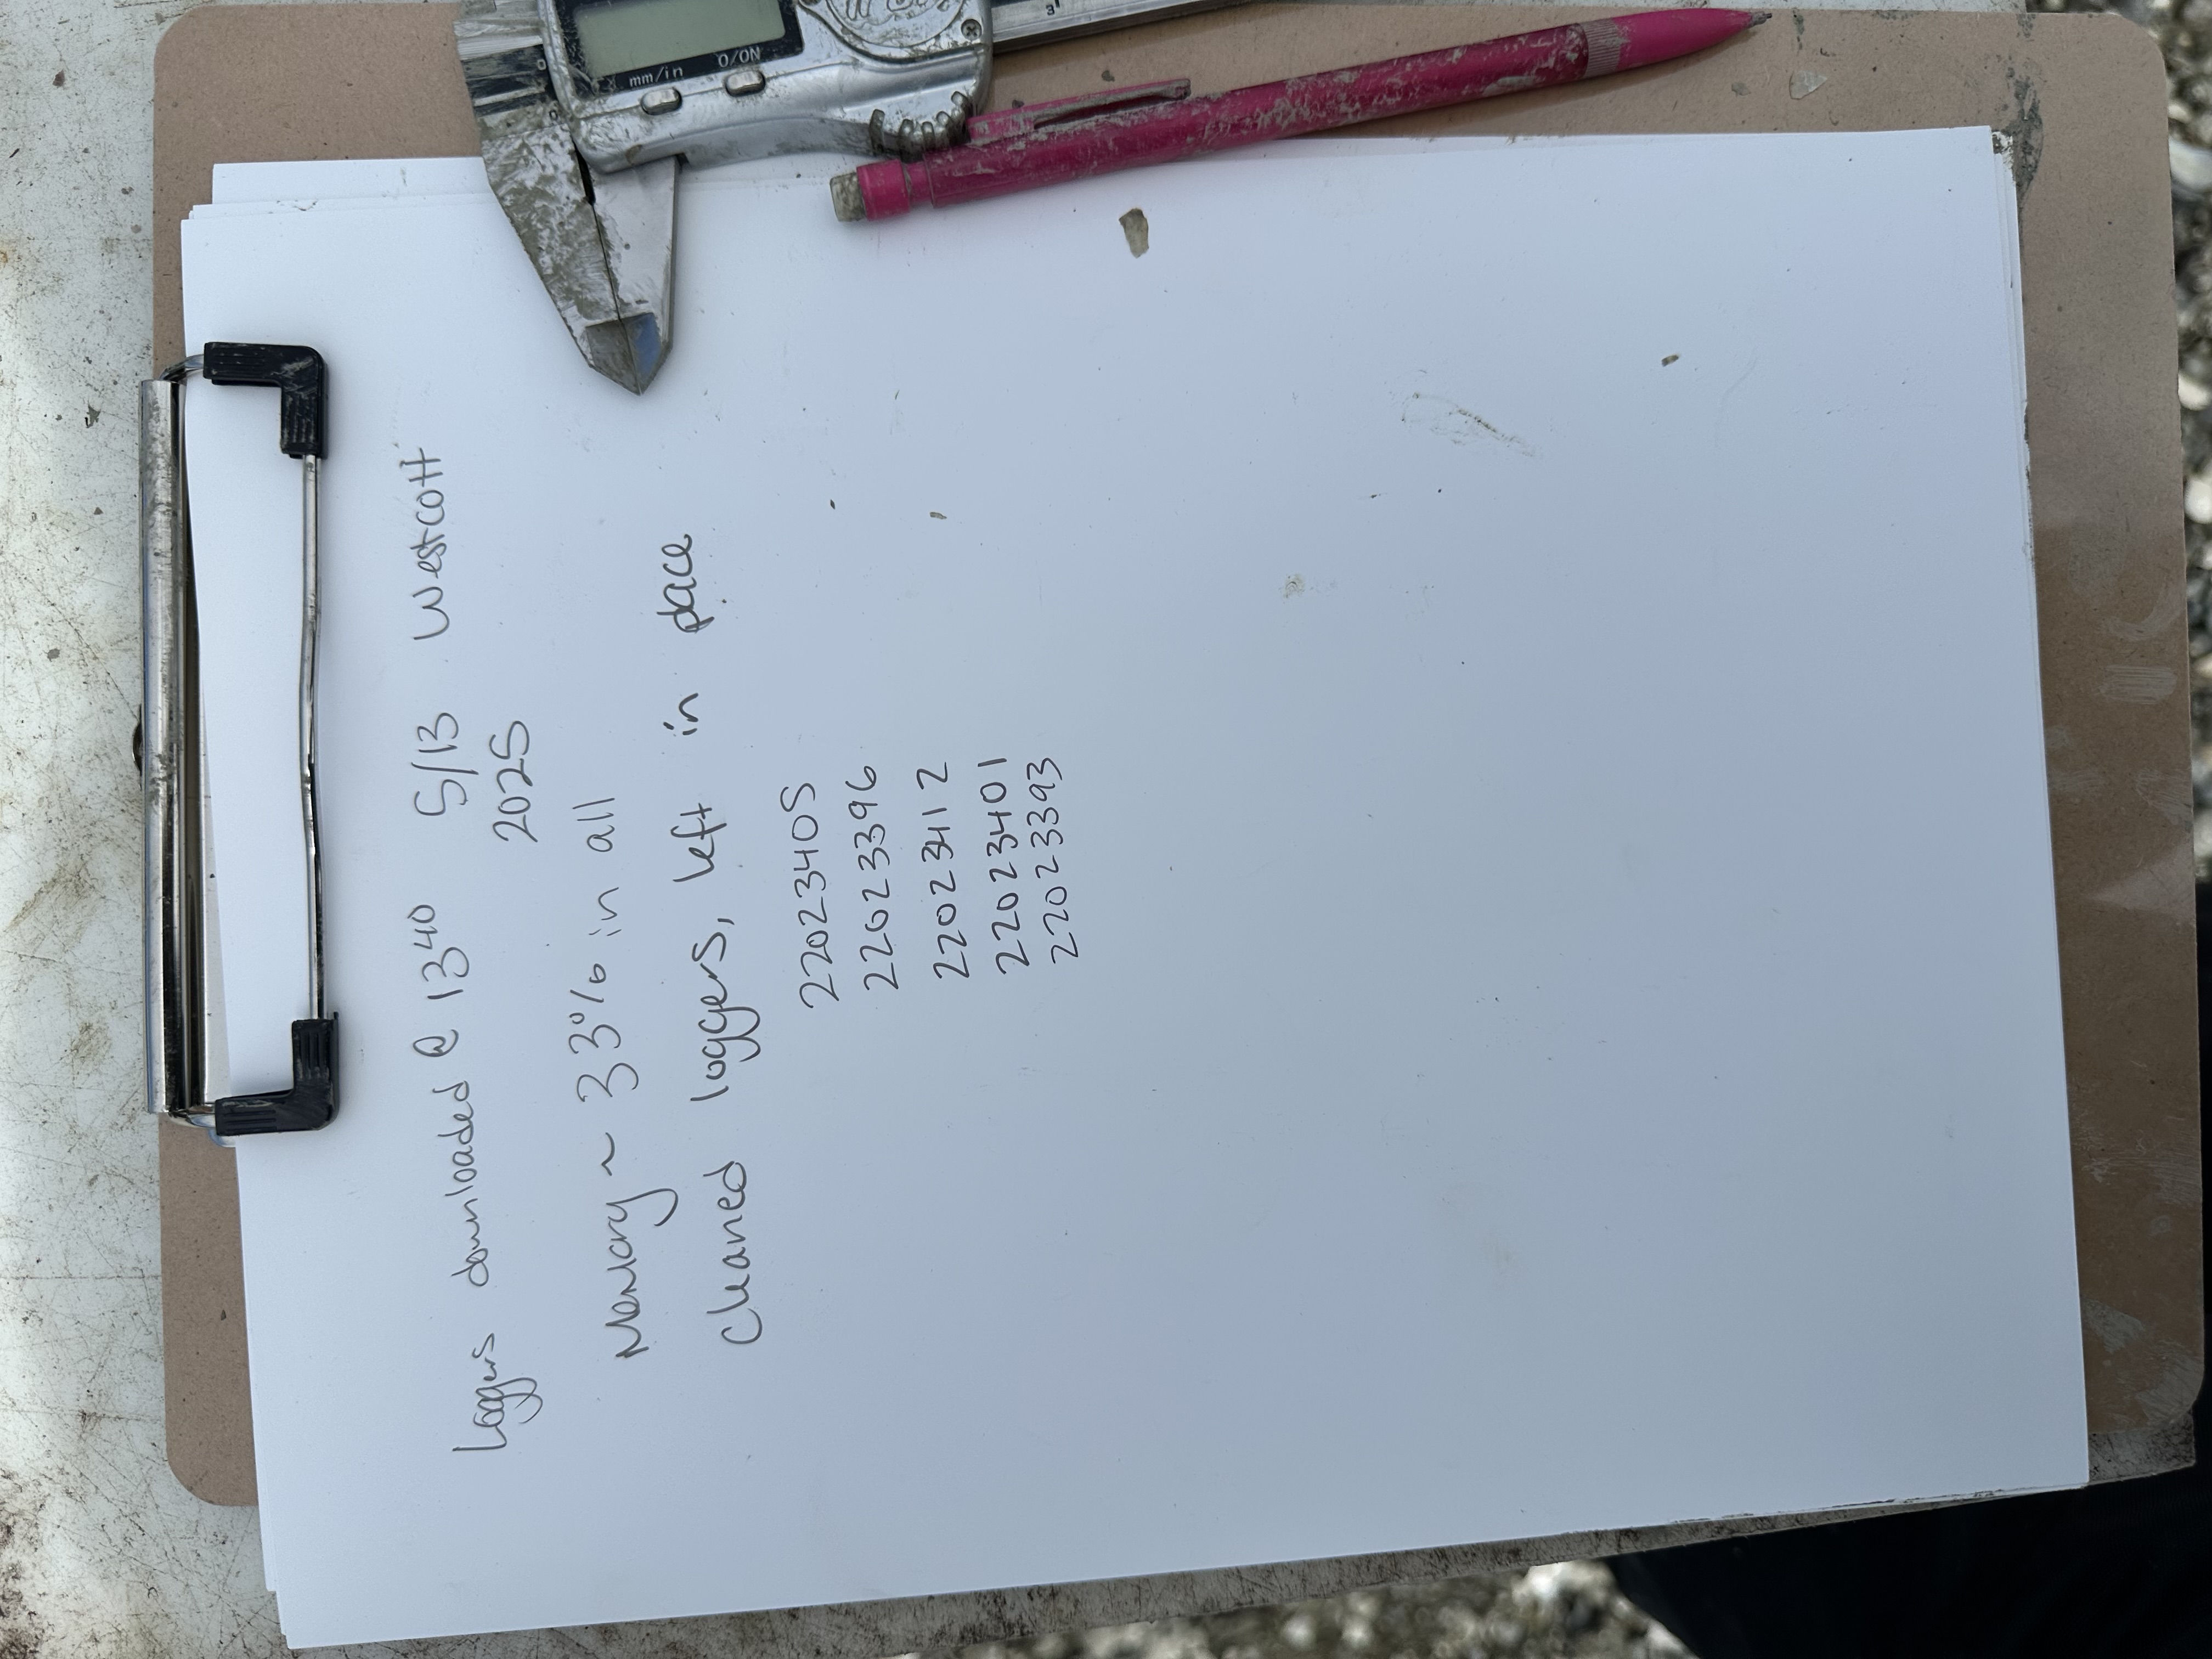 Loggers downloaded @ 13⁴⁰ 5/13 Westcott
2025
Memory ~ 33% in all
cleaned loggers, left in place
22023405
22023396
22023412
22023401
22023393
mm/in
O/ON